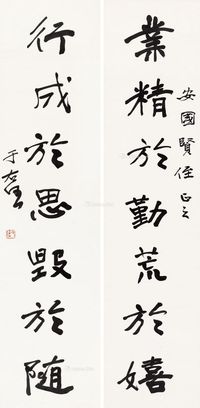 安國賢侄正之
業精於勤荒於嬉
行成於思毀於隨
于右任